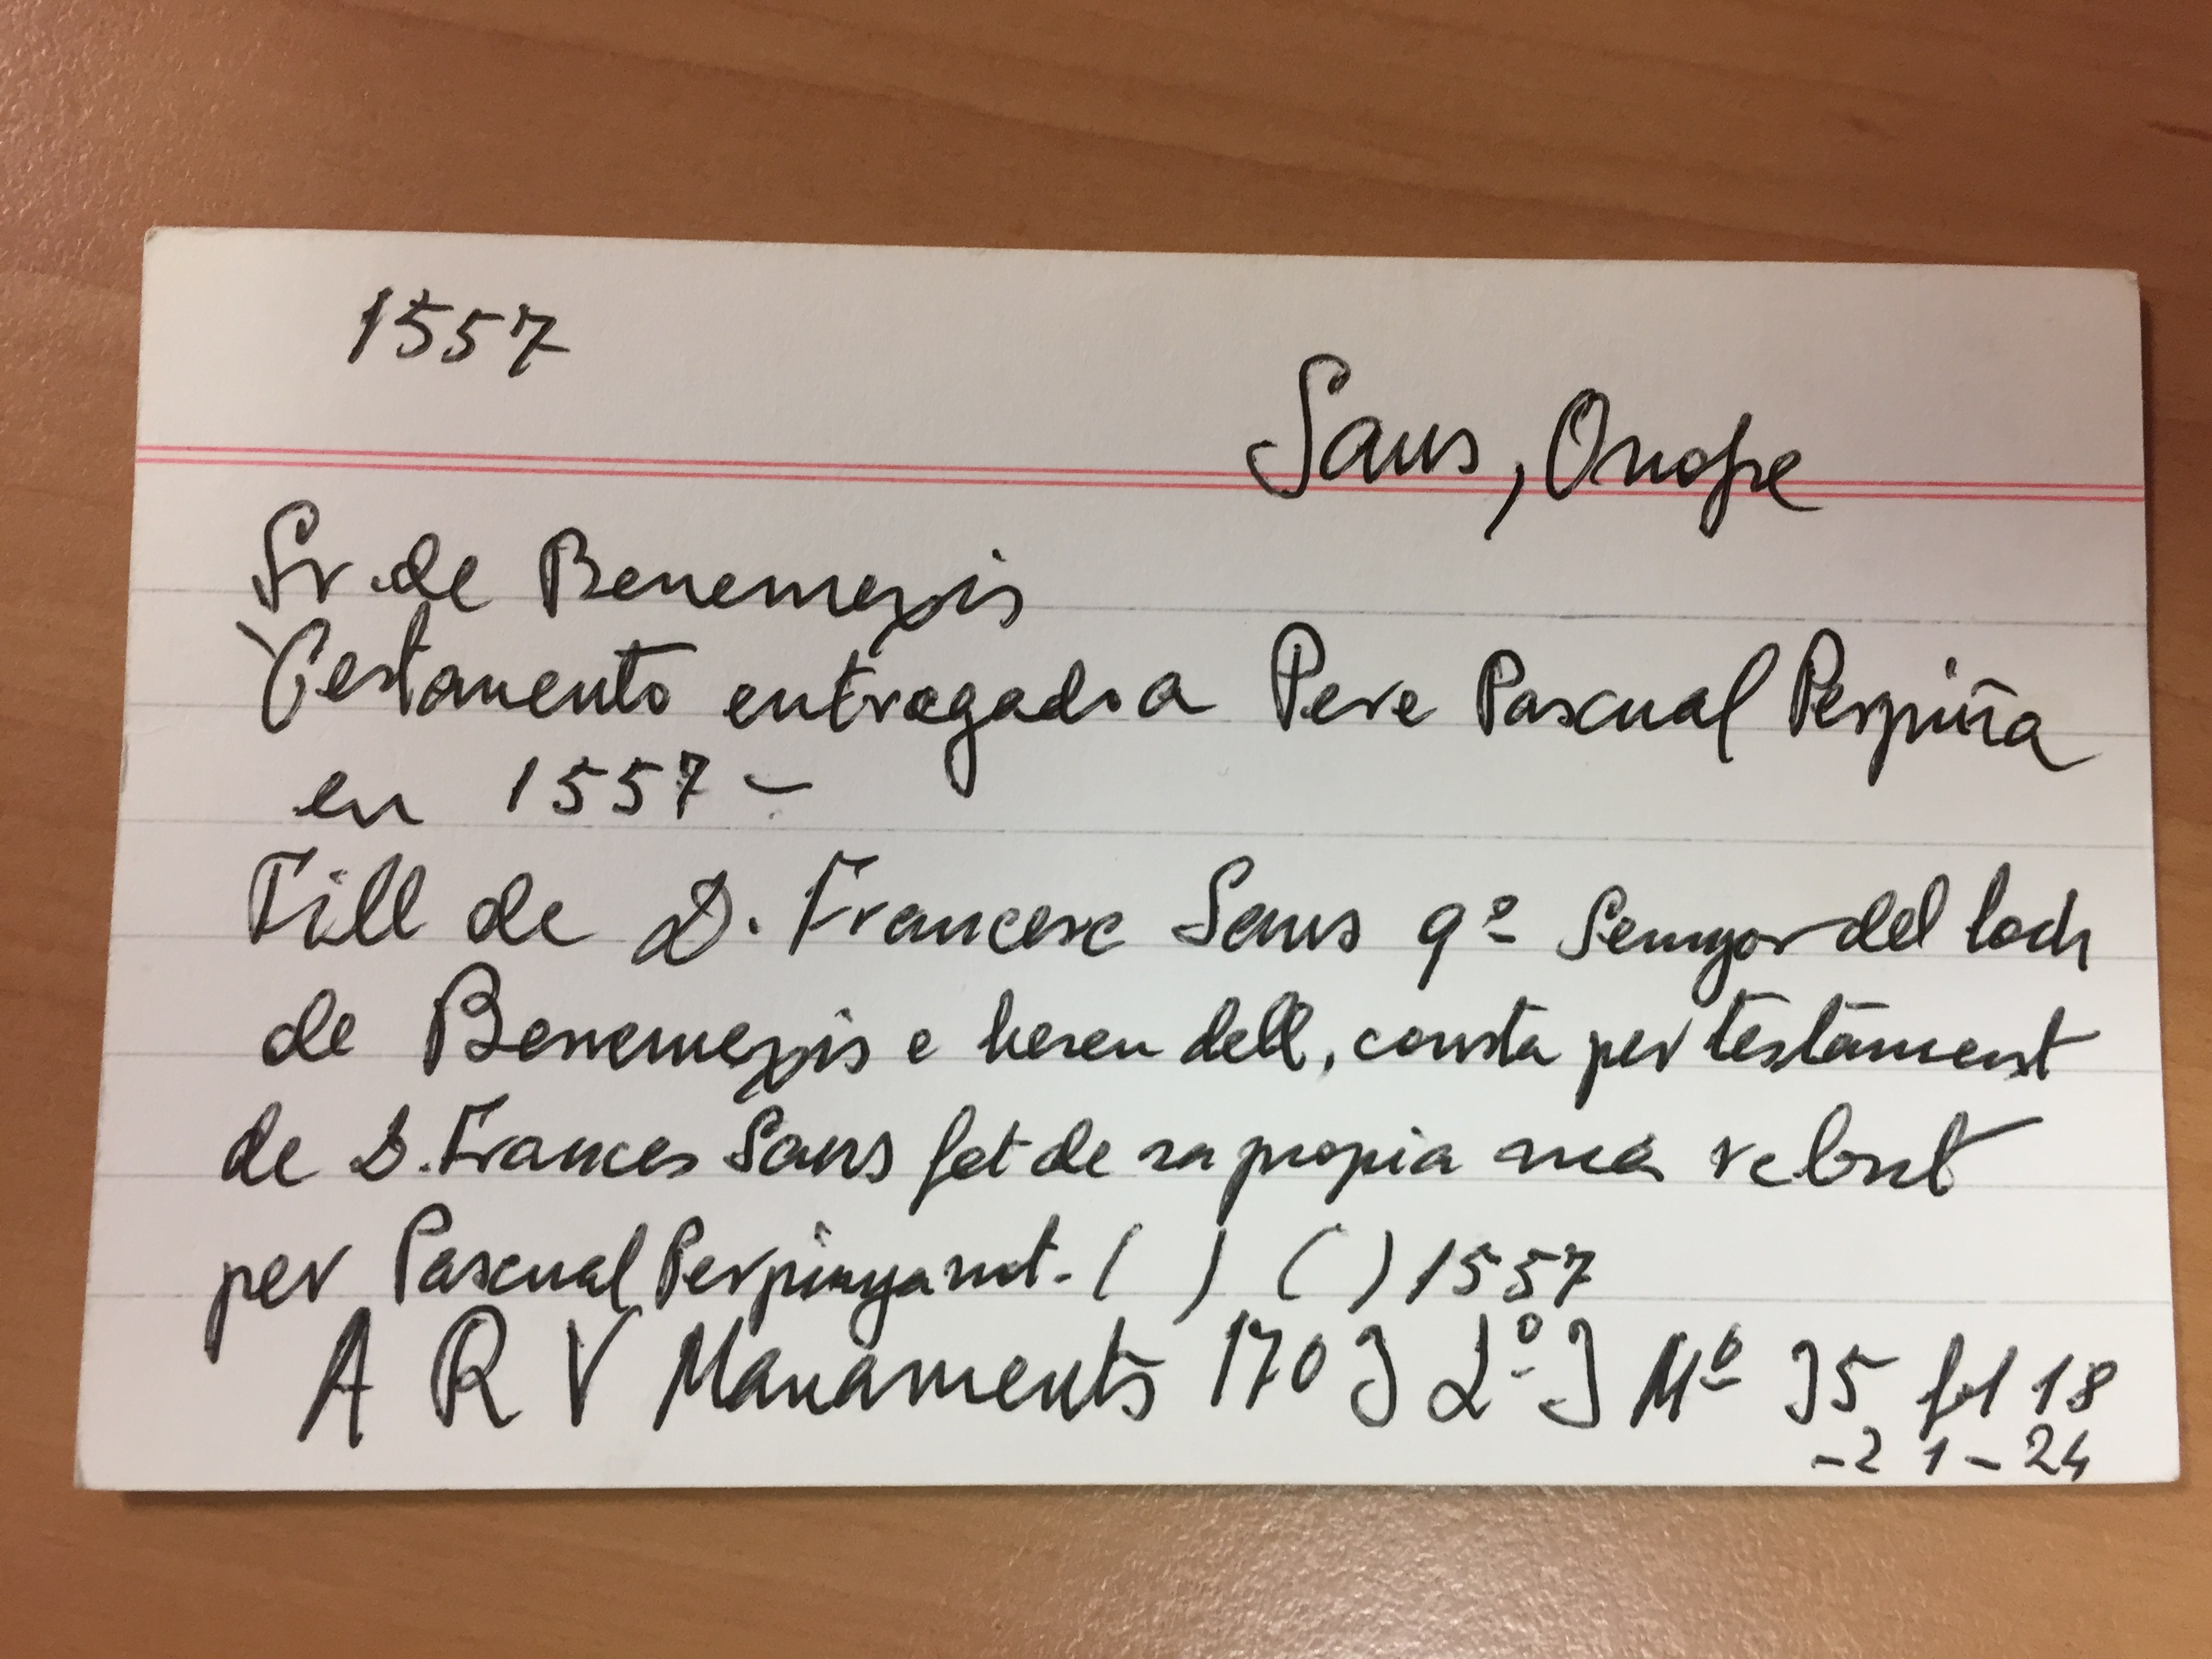 1557
Sans, Onofre
Sr. de Benemexis
Testamento entregado a Pere Pascual Perpiña
en 1557 -
Fill de D. Francesc Sans qº Senyor del loch
de Benemexis e hereu dell, consta per testament
de D. Frances Sans fet de sa propia ma rebut
per Pascual Perpinya not. ( ) ( ) 1557
A R V Manaments 1703 Lº 3 Mº 35 fol 18
-21-24